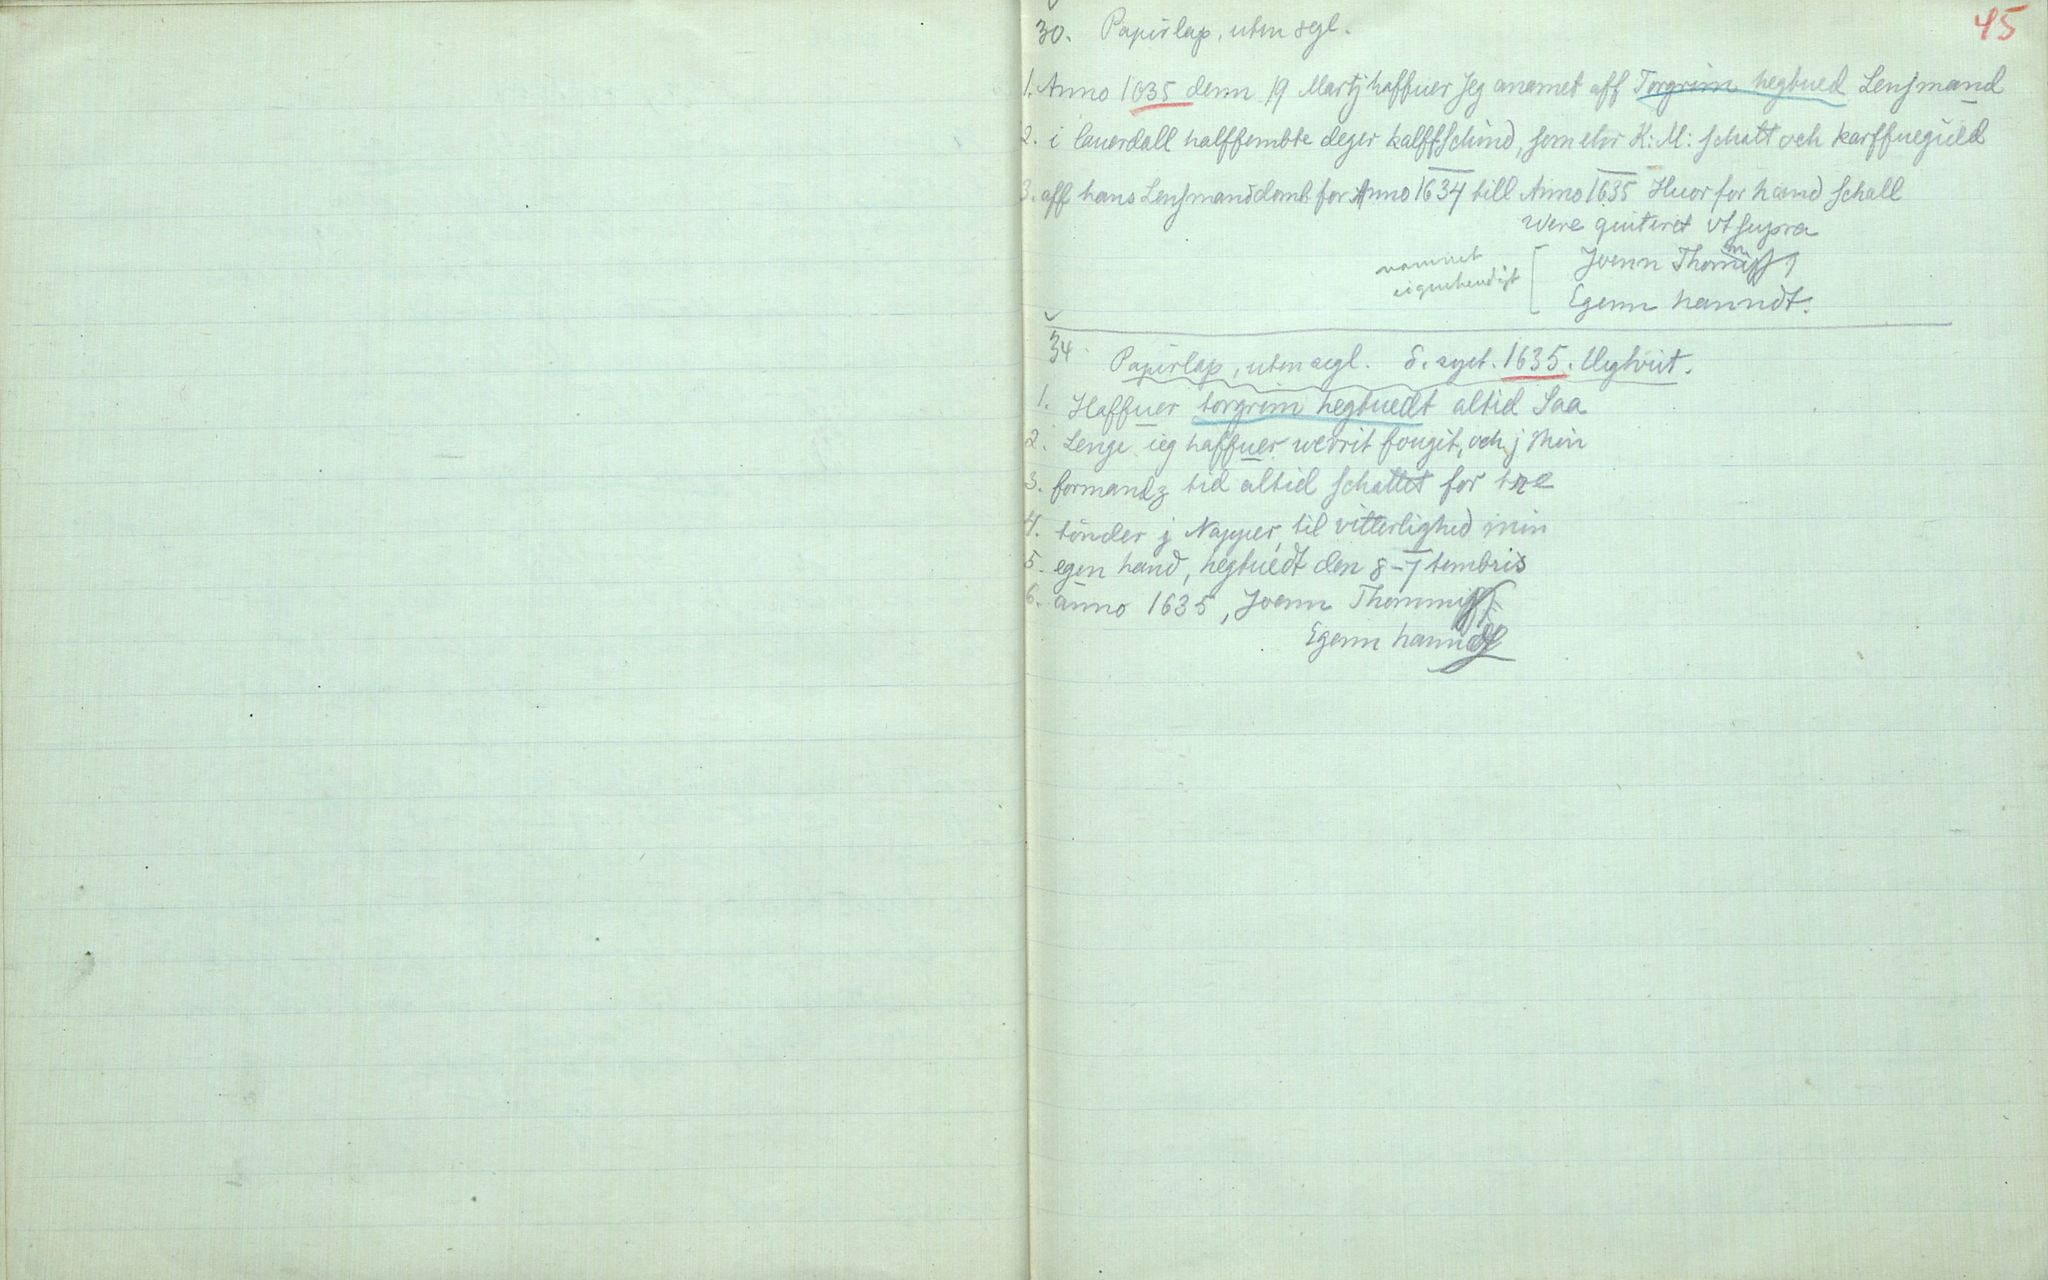 45
30. Papirlap, uten segl.
1. Anno 1635 denn 19 Martj haffuer Jeg anamet aff Torgrim hegtued Lensmand
2. i lauerdall halffembte deger kalffschind, som er K: M: schatt och karffuegield
3. aff hans Lensmandsdomb for Anno 1634 till Anno 1635 Huor for hand schall
were quiteret vt supra
navnet
eigenhendigt
Joenn Thomiss
Egenn hanndt.
34. Papirlap, uten segl. 8. sept. 1635. Hegtvit.
1. Haffuer torgrim hegtuedt altid Saa
2. Lenge ieg haffuer werrit fougit, och j Min
3. formandz tid altid schattet for tre
4. tönder j Napper, til vitterlighed min
5. egen hand, hegtuedt den 8-7 tembris
6. anno 1635, Joenn Thommiss
Egenn hanndt